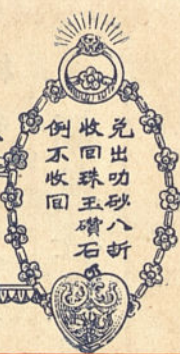 兌出叻砂八折
收回珠玉礸石
例不收回